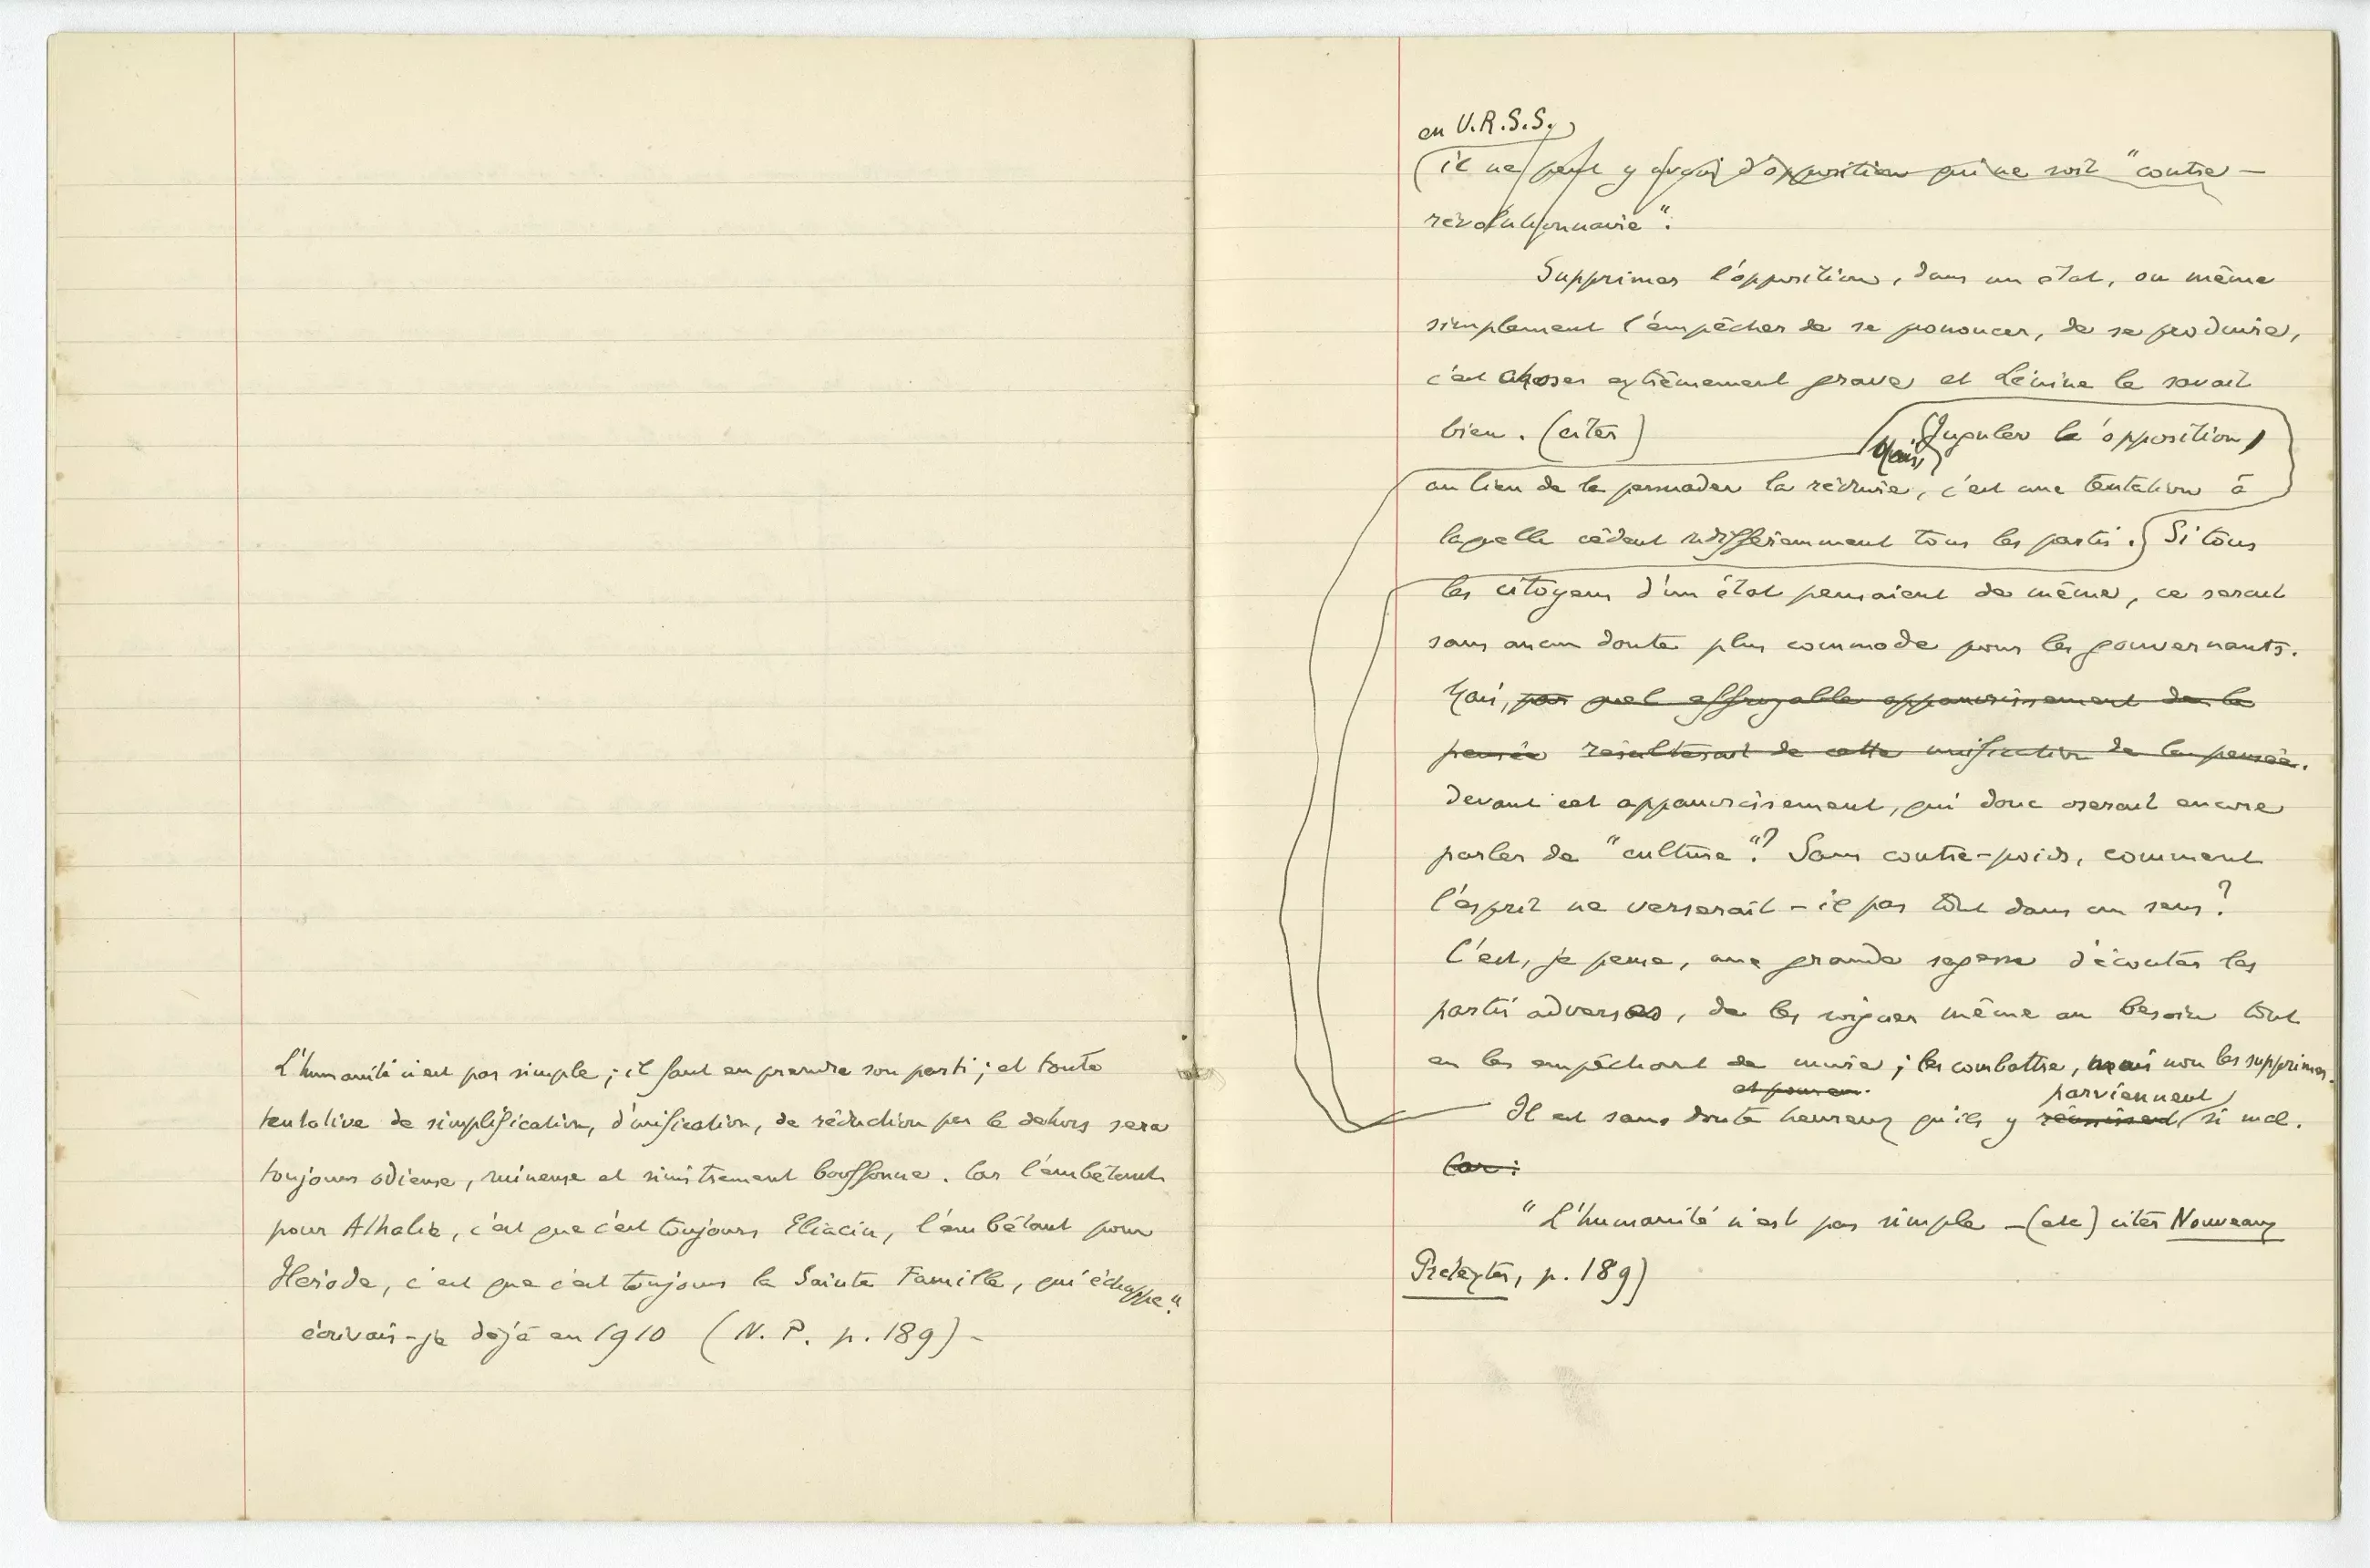 L'humanité n'est pas simple ; il faut en prendre son parti ; et toute
tentative de simplification, d'unification, de réduction par le dehors sera
toujours odieuse, ruineuse et sinistrement bouffonne. Car l'embêtant
pour Athalie, c'est que c'est toujours Eliacin, l'embêtant pour
Hérode, c'est que c'est toujours la Sainte Famille, qui échappe."
écrivais-je déjà en 1910 (N. P. p. 189) -
en U.R.S.S.
(il ne peut y avoir d'opposition qui ne soit "contre-
révolutionnaire".
Supprimer l'opposition, dans un état, ou même
simplement l'empêcher de se prononcer, de se produire,
c'est chose extrêmement grave et Lénine le savait
bien. (citer) Juguler l'opposition,
Mais,
au lieu de la persuader la réduire, c'est une tentation à
laquelle cèdent indifféremment tous les partis. Si tous
les citoyens d'un état pensaient de même, ce serait
sans aucun doute plus commode pour les gouvernants.
Mais, par quel effroyable appauvrissement de la
pensée résulterait de cette unification de la pensée.
devant cet appauvrissement, qui donc oserait encore
parler de "culture"? Sans contre-poids, comment
l'esprit ne verserait-il pas tout dans un sens?
C'est, je pense, une grande sagesse d'écouter les
partis adverses, de les soigner même au besoin tout
en les empêchant de nuire ; les combattre, mais non les supprimer.
parviennent
Il est sans doute heureux qu'ils y réussissent si mal.
Car :
"L'humanité n'est pas simple - (etc) citer Nouveaux
Prétextes, p. 189)